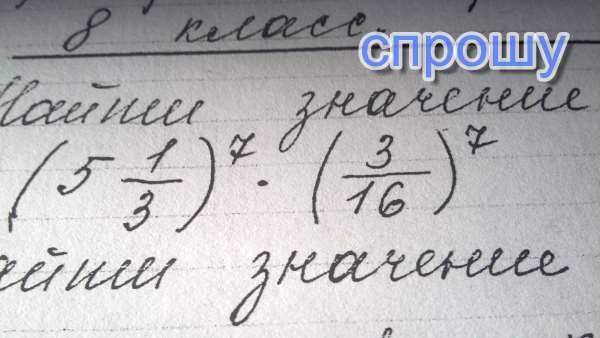 8 класс.
спрошу
Найти значение
(5 1/3)^7 · (3/16)^7
айти значение